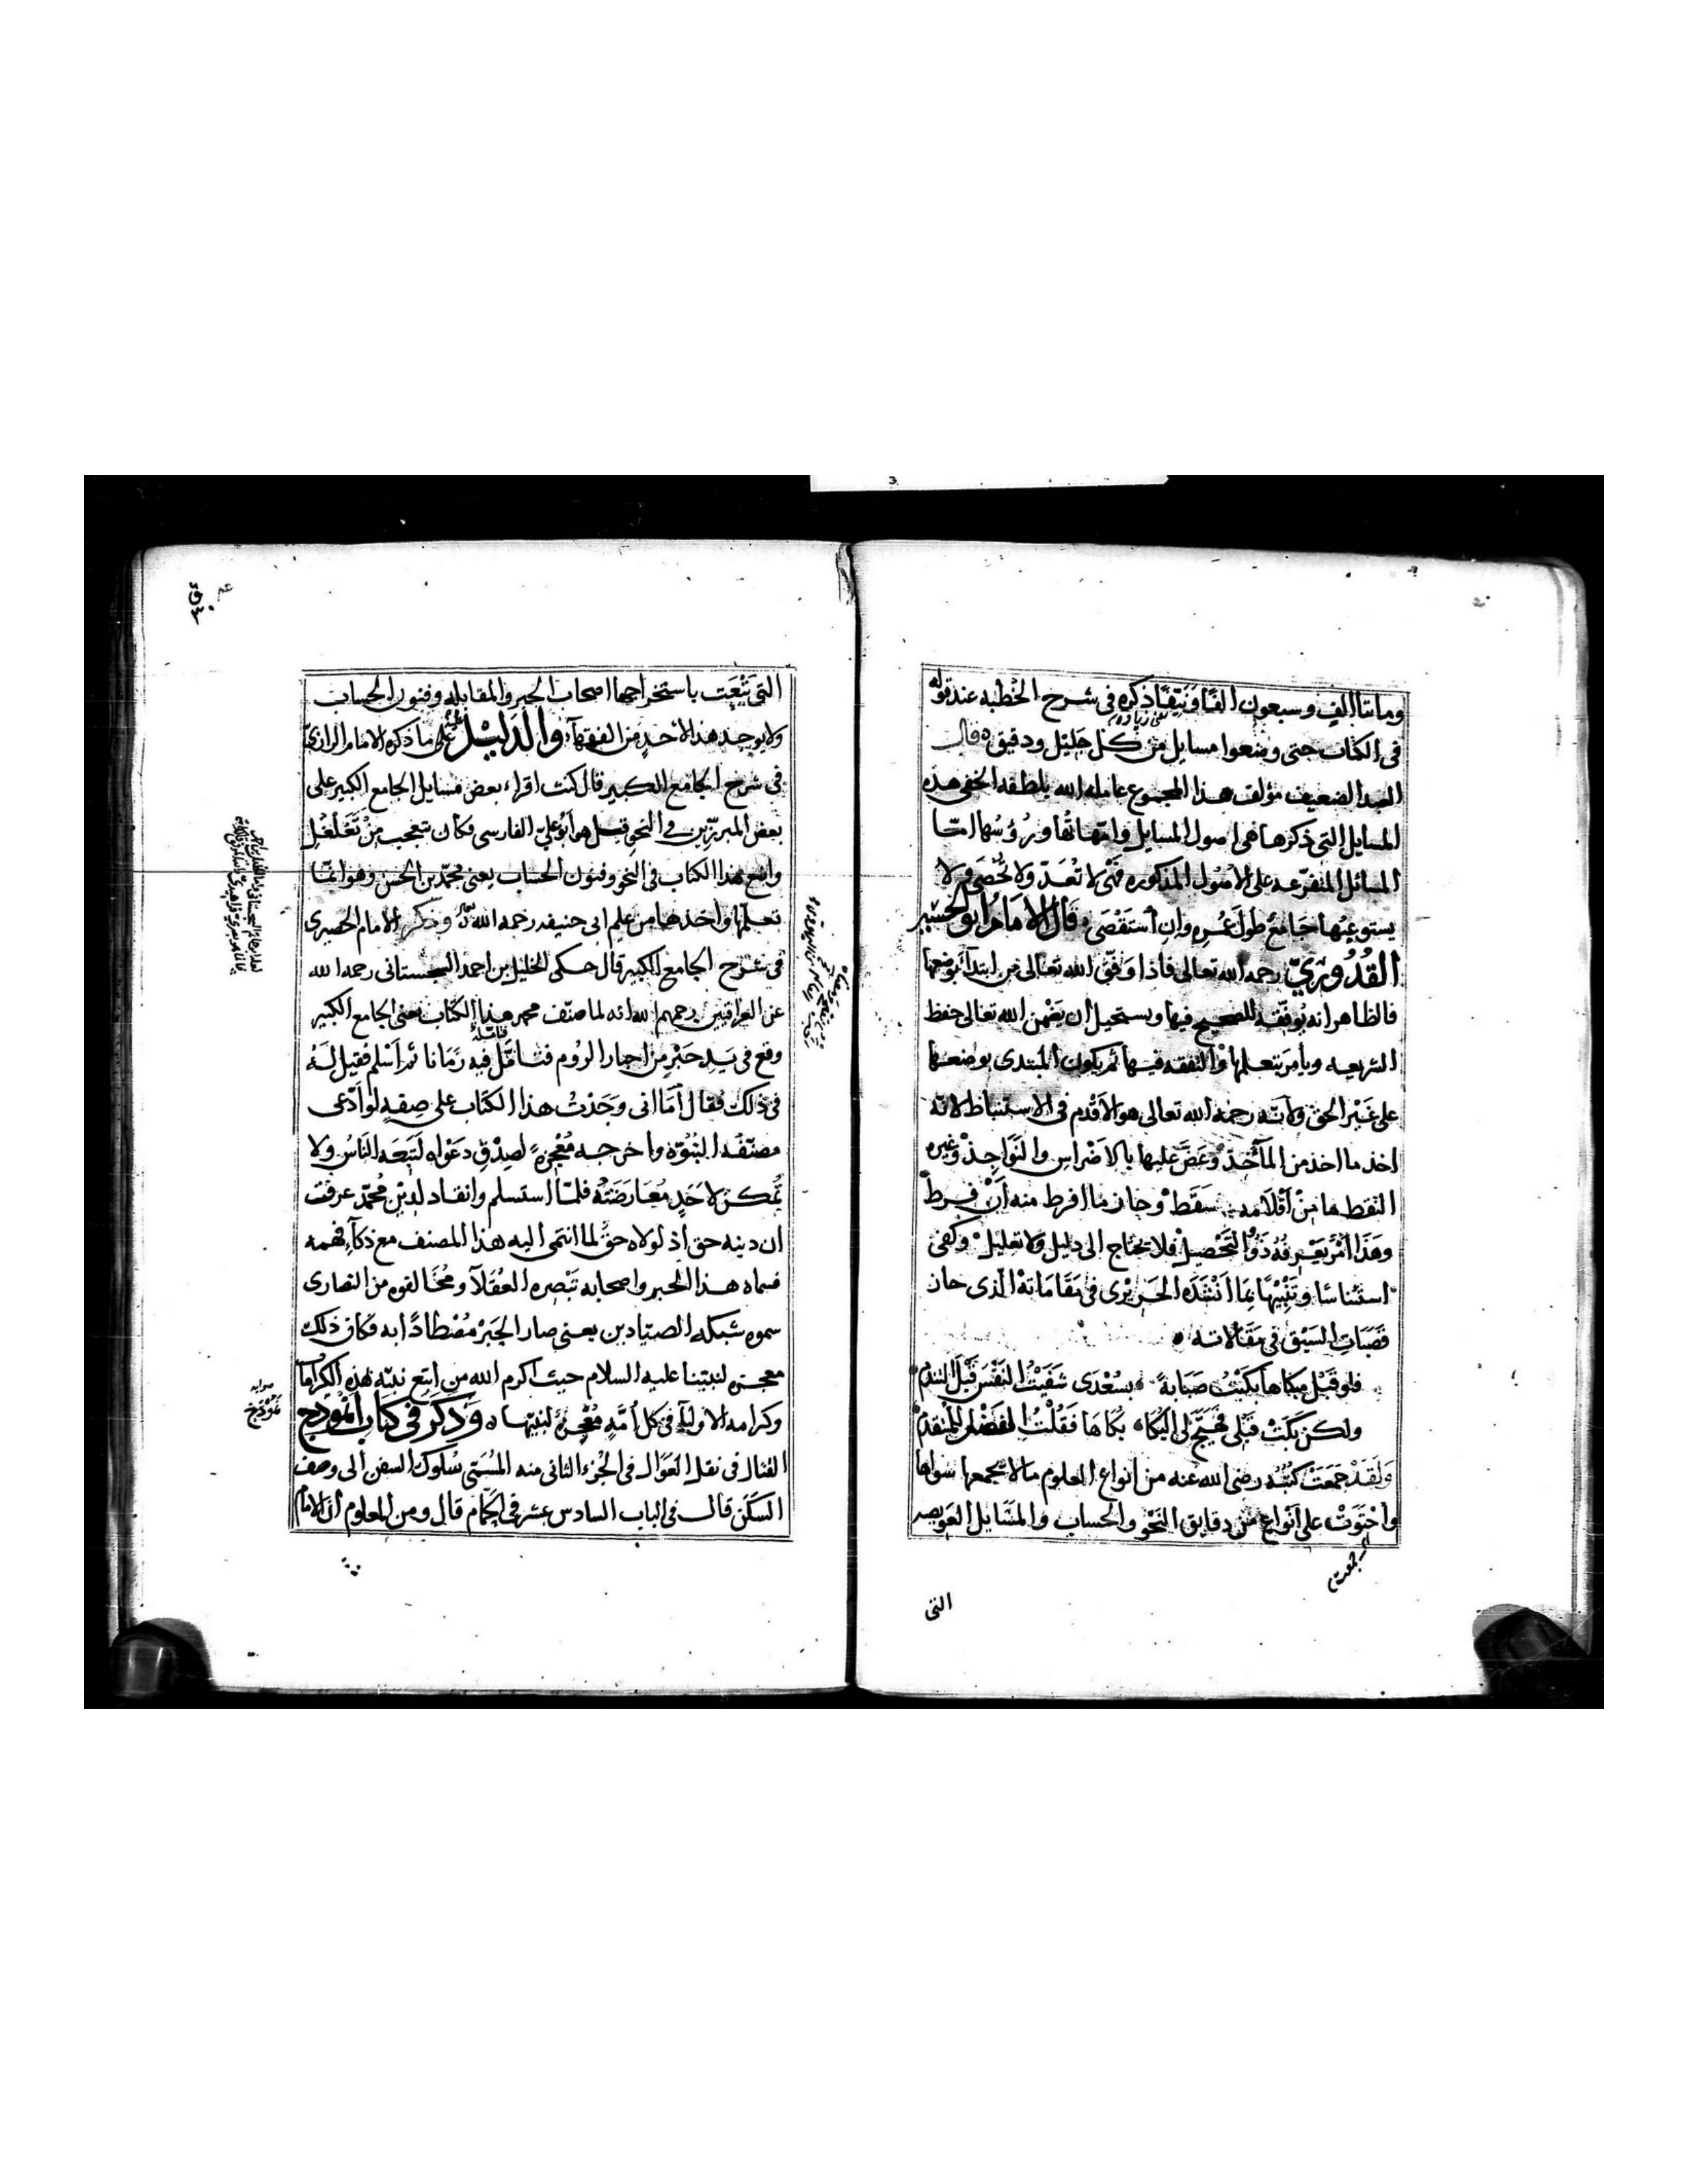 ومائتا الف وسبعون الفا ونيفا ذكره فى شرح الخطبه عند قوله
فى الكتاب حتى وضعوا مسايل من كل جليل ودقيق ه قال
العبد الضعيف مؤلف هذا المجموع عامله الله بلطفه الخفى هذه
المسايل التى ذكرها هى اصول المسايل وامهاتها ورؤسها امّا
المسائل المتفرعه على الاصول المذكوره فهى لا تعدّ ولا تحصى ولا
يستوعبها جامع طول عمره وان استقصى قال الامام ابو الحسين
القدورىّ رحمه الله تعالى فاذا وفق الله تعالى من ابتدأ بوضعها
فالظاهر انه يوفقه للصحيح فيها ويستحيل أن يضمن الله تعالى حفظ
الشريعه ويأمر بتعلمها والتفقه فيها ثم يكون المبتدى بوضعها
على غير الحق ولانه رحمه الله تعالى هو الاقدم فى الاستنباط لانه
اخذ ما اخذ من المأخذ وعضّ عليها بالاضراس والنواجذ وغيره
التقط ما من أقلامه سقط وحاز ما افرط منه أن فرط
وهذا أمر يعرفه ذوو التحصيل فلا يحتاج الى دليل ولا تعليل وكفى
استئناسا وتنبيها بما انشده الحريرى فى مقاماته الذى حاز
قصبات السبق فى مقالاته ه
فلو قبل مبكاها بكيت صبابة بسعدى شفيت النفس قبل التندم
ولكن بكت قبلى فهيج لى البكا بكاها فقلت الفضل للمتقدم
ولقد جمعت كتبه رضى الله عنه من انواع العلوم مالا يجمعها سواها
واحتوت على أنواع من دقايق النحو والحساب والمسايل العويصه
التى
التى يتعب باستخراجها اصحاب الجبر والمقابله وفنون الحساب
ولا يوجد هذا لاحد من الفقهآء والدليل على ما ذكره الامام الرازى
فى شرح الجامع الكبير قال كنت اقراء بعض مسايل الجامع الكبير على
بعض المبرزين فى النحو قيل هو أبو علىّ الفارسى فكان يتعجب من تغلغل
واضع هذا الكتاب فى النحو وفنون الحساب يعنى محمد بن الحسن وهو انما
تعلمها واخذها من علم ابى حنيفه رحمه الله وذكر الامام الحصيرى
فى شرح الجامع الكبير قال حكى الخليل بن احمد السجستانى رحمه الله
عن العراقيين رحمهم الله انه لما صنّف محمد هذا الكتاب يعنى الجامع الكبير
وقع فى يد حبر من احبار الروم فتأمّل فيه زمانا ثم أسلم فقيل له
فى ذلك فقال أما انى وجدت هذا الكتاب على صفه لو ادّعى
مصنّفه النبوّة واخرجه معجزة لصدق دعواه لتبعه الناس ولا
يمكن لاحد معارضته فلمّا استسلم وانقاد لدين محمّد عرفت
ان دينه حق أذ لولاه حق لما انتمى اليه هذا المصنف مع ذكآء فهمه
فسماه هذا الحبر واصحابه تبصره العقلآ ومخالفوه من النصارى
سموه شبكه الصيّادين يعنى صار الحبر مصطادًا به فكان ذلك
معجزه لنبيّنا عليه السلام حيث اكرم الله من اتبع نبيّه بهذه الكراما
وكرامه الاوليآء فى كل أمّه معجزة لنبيّها ه وذكر فى كتاب النموذج
القتال فى نقل العوال فى الجزء الثانى منه المسمّى سلوك السفن ألى وصف
السكن قال فى الباب السادس عشر فى الحمّام قال ومن المعلوم أن الامام
صوابه
نموذج